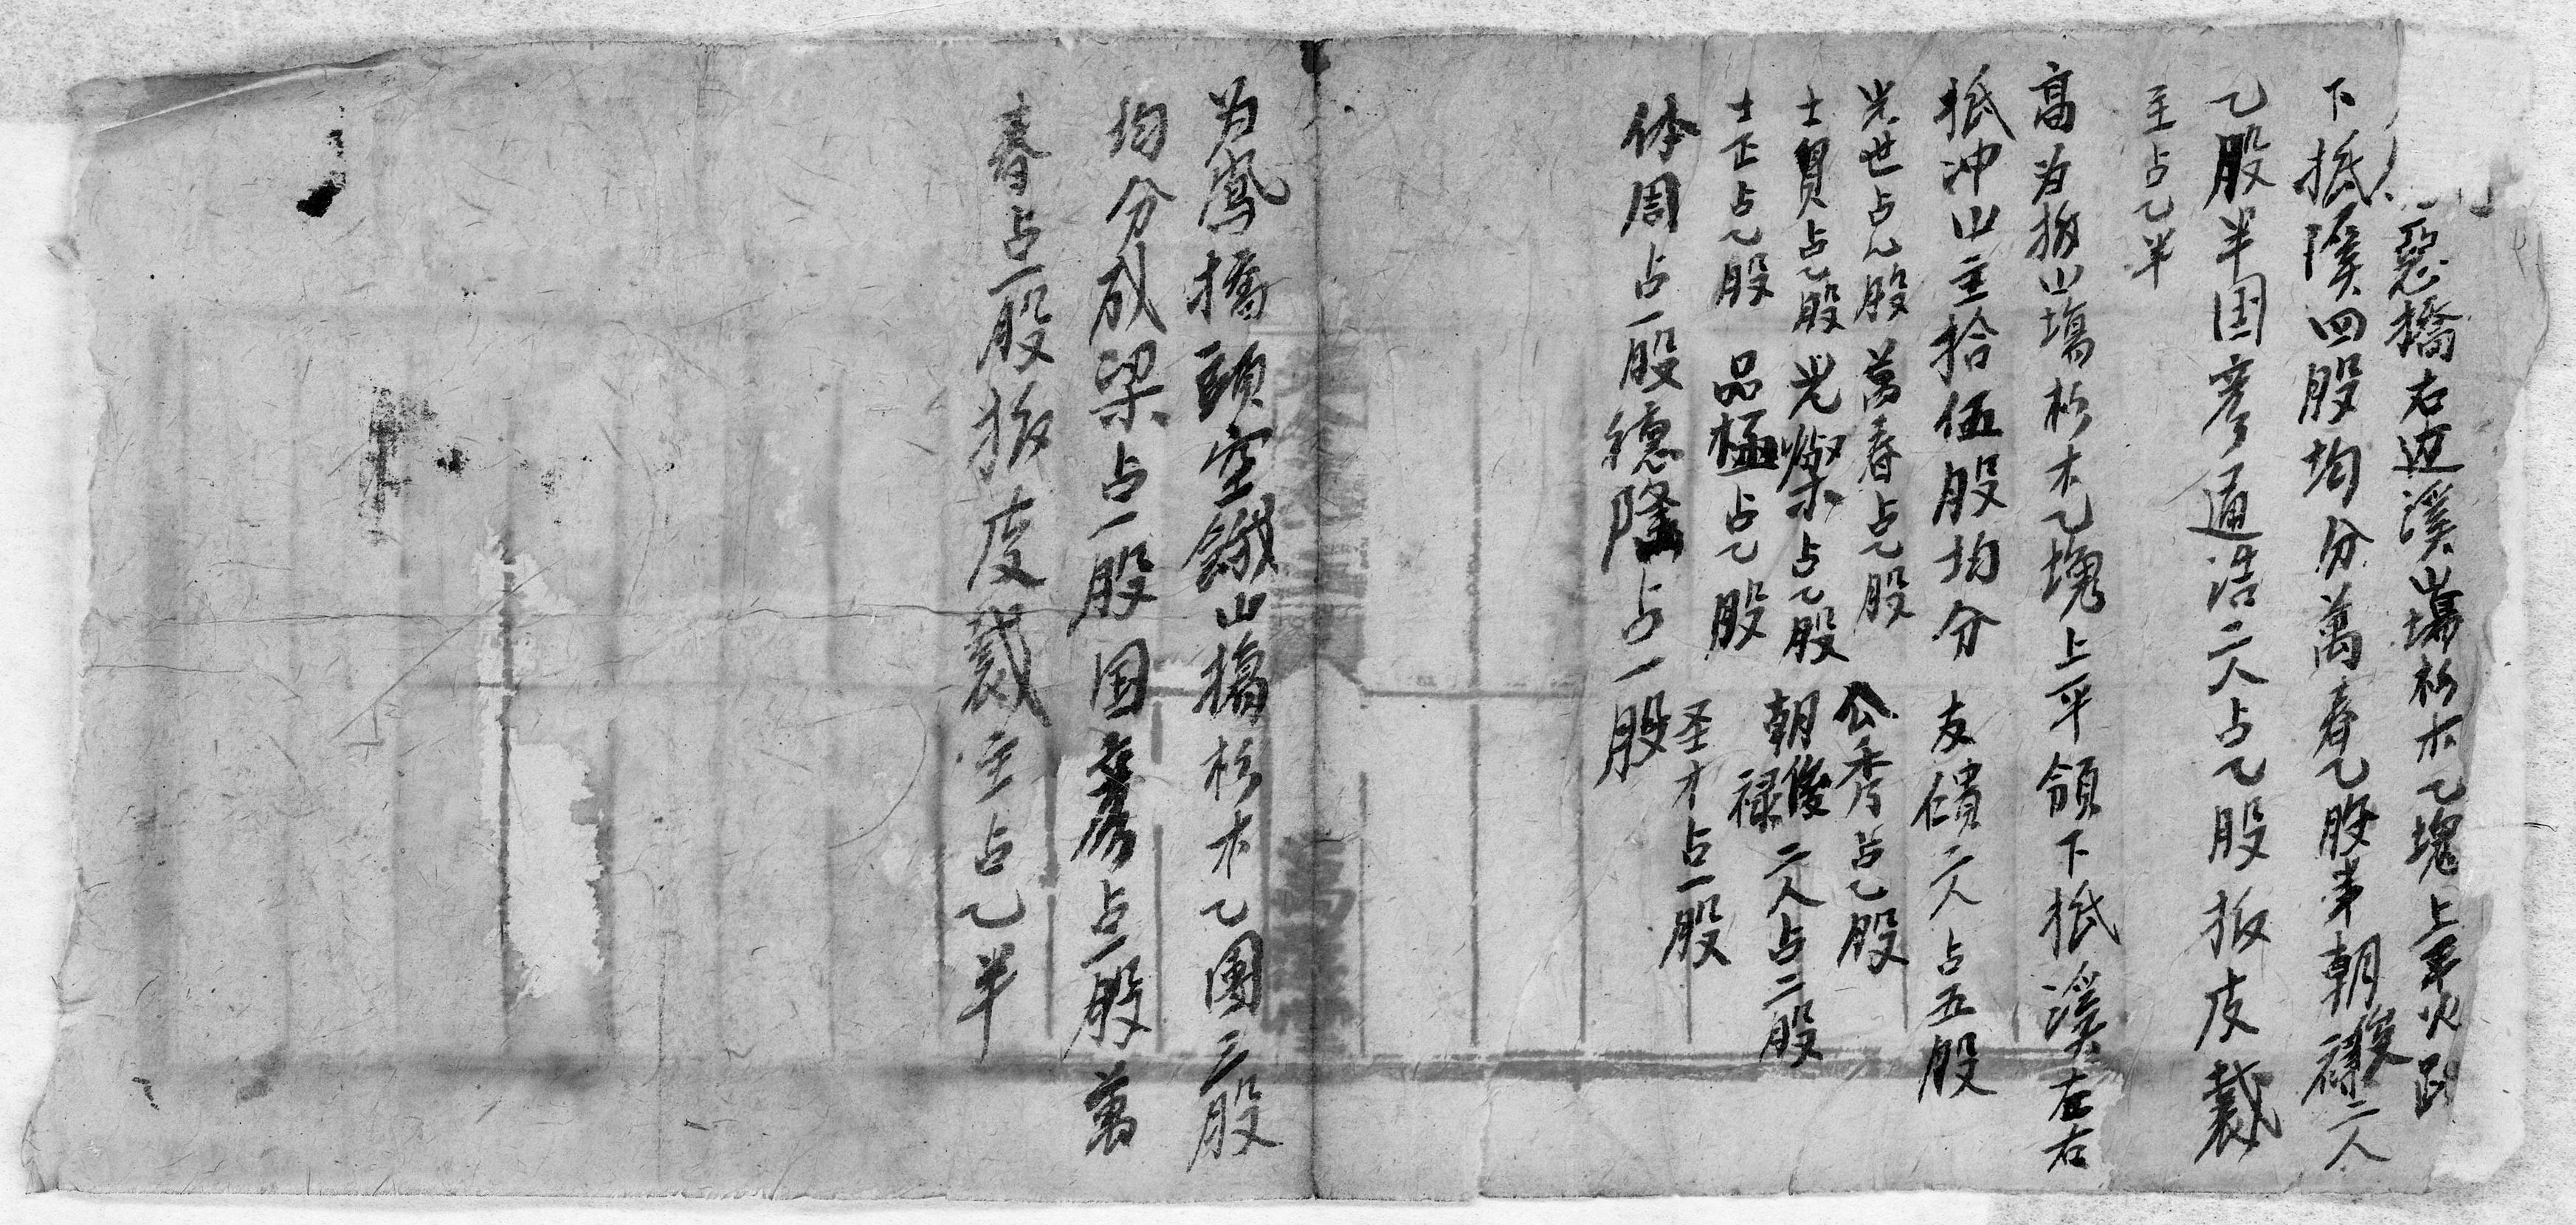 惡橋右边溪山塲杉木乙塊上平火路
下抵溪四股均分萬春乙股半朝俊禄二人
乙股半国彥通浩二人占乙股扳皮裁
主占乙半
高为扳山塲杉木乙塊上平領下抵溪左右
抵冲山主拾伍股均分 友儥二人占五股
光世占乙股萬春占乙股 公秀占乙股
士貝占乙股光燦占乙股 朝俊禄二人占二股
士正占乙股 品極占乙股 圣才占一股
体周占一股德隆占一股
为鳶擕頭空鐵山塲杉木乙團三股
均分成梁占一股国彥占一股萬
春占一股扳皮裁主占乙半